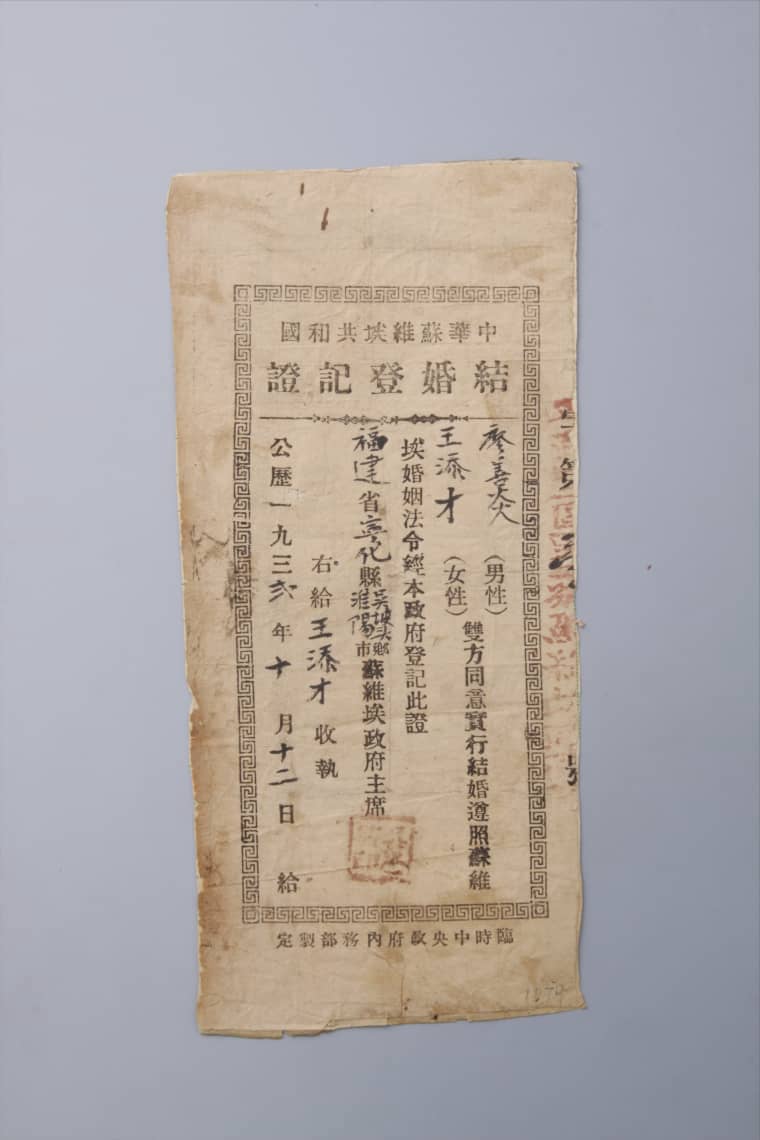 中華蘇維埃共和國
結婚登記證
廖善炎(男性)
王添才(女性)
雙方同意實行結婚遵照蘇維
埃婚姻法令經本政府登記此證
福建省寧化縣淮陽市蘇維埃政府主席
右給王添才收執
公歷一九三弍年十月十二日給
臨時中央政府內務部製定